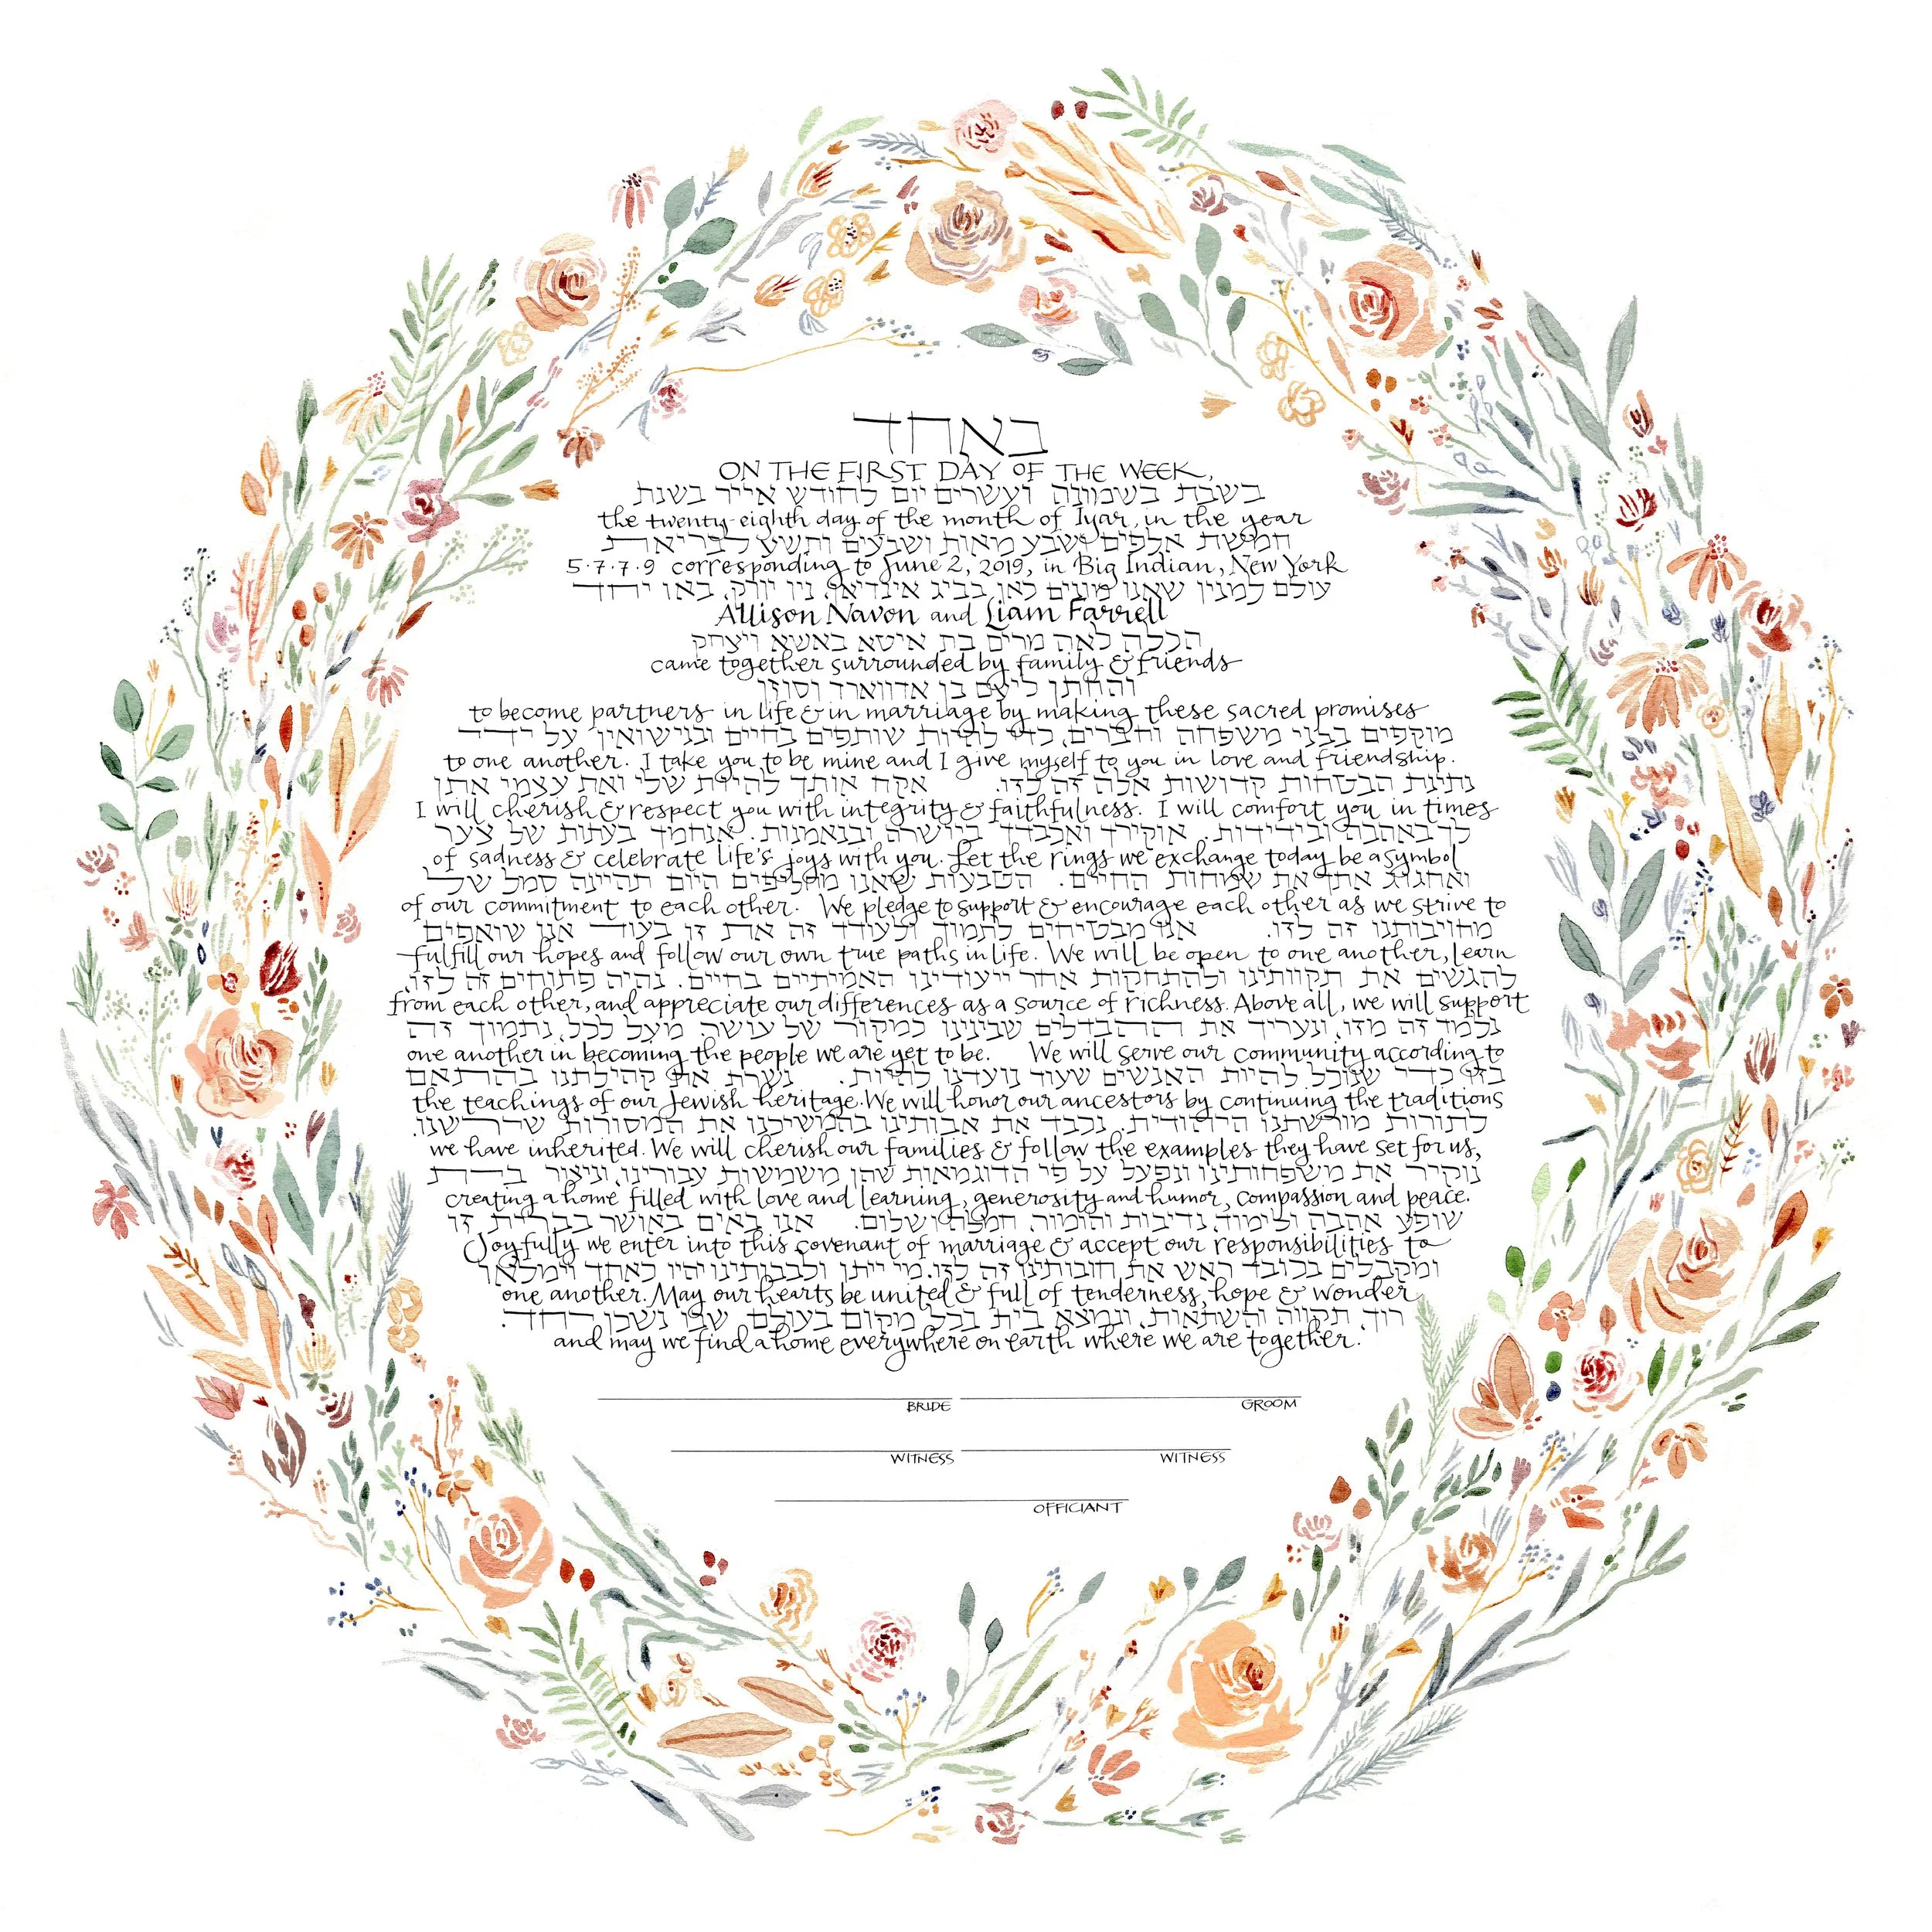 באחד
ON THE FIRST DAY OF THE WEEK,
בשבת בשמונה ועשרים יום לחודש אייר בשנת
the twenty-eighth day of the month of Iyar, in the year
חמשת אלפים ושבע מאות ושבעים ותשע לבריאת
5·7·7·9 corresponding to June 2, 2019, in Big Indian, New York
עולם למנין שאנו מונים כאן בביג אינדיאן, ניו יורק, באו יחד
Allison Navon and Liam Farrell
הכלה לאה מרים בת איטא באשא ויצחק
came together surrounded by family & friends
והחתן ליעם בן אדווארד וסוזן
to become partners in life & in marriage by making these sacred promises
מוקפים בבני משפחה וחברים, כדי להיות שותפים בחיים ובנישואין על ידי
to one another. I take you to be mine and I give myself to you in love and friendship.
נתינת הבטחות קדושות אלה זה לזו. אקח אותך להיות שלי ואת עצמי אתן
I will cherish & respect you with integrity & faithfulness. I will comfort you in times
לך באהבה ובידידות. אוקירך ואכבדך ביושרה ובנאמנות. אנחמך בעתות של צער
of sadness & celebrate life's joys with you. Let the rings we exchange today be a symbol
ואחגוג אתך את שמחות החיים. הטבעות שאנו מחליפים היום תהיינה סמל של
of our commitment to each other. We pledge to support & encourage each other as we strive to
מחויבותנו זה לזו. אנו מבטיחים לתמוך ולעודד זה את זו בעוד אנו שואפים
fulfill our hopes and follow our own true paths in life. We will be open to one another, learn
להגשים את תקוותינו ולהתחקות אחר ייעודינו האמיתיים בחיים. נהיה פתוחים זה לזו,
from each other, and appreciate our differences as a source of richness. Above all, we will support
נלמד זה מזו, ונעריך את ההבדלים שבינינו כמקור של עושה. מעל לכל, נתמוך זה
one another in becoming the people we are yet to be. We will serve our community according to
בזו כדי שנוכל להיות האנשים שעוד נועדנו להיות. נשרת את קהילתנו בהתאם
the teachings of our Jewish heritage. We will honor our ancestors by continuing the traditions
לתורות מורשתנו היהודית. נכבד את אבותינו בהמשיכנו את המסורות שירשנו.
we have inherited. We will cherish our families & follow the examples they have set for us,
נוקיר את משפחותינו ונפעל על פי הדוגמאות שהן משמשות עבורינו, וניצור בית
creating a home filled with love and learning, generosity and humor, compassion and peace.
שופע אהבה ולימוד, נדיבות והומור, חמלה ושלום. אנו באים באושר בברית זו
Joyfully we enter into this covenant of marriage & accept our responsibilities to
ומקבלים בכובד ראש את חובותינו זה לזו. מי ייתן ולבבותינו יהיו כאחד וימלאו
one another. May our hearts be united & full of tenderness, hope & wonder
רוך, תקווה והשתאות, ונמצא בית בכל מקום בעולם, שבו נשכון יחד.
and may we find a home everywhere on earth where we are together.
BRIDE GROOM
WITNESS WITNESS
OFFICIANT